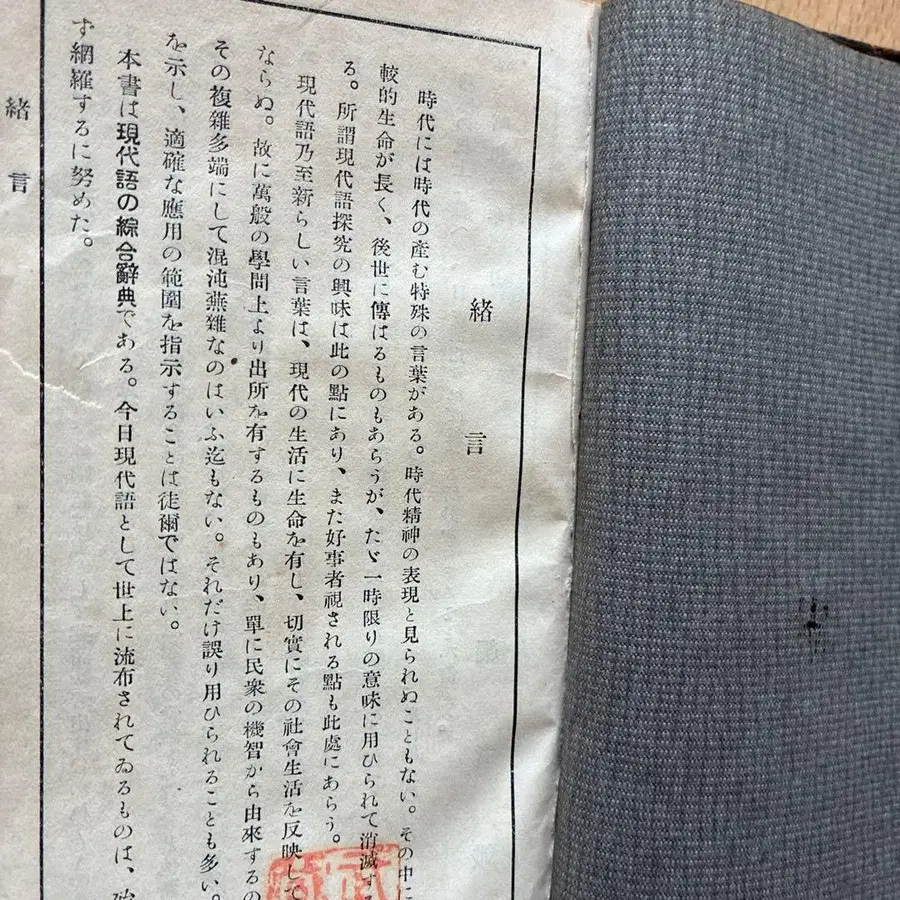 緒言
時代には時代の產む特殊の言葉がある。時代精神の表現と見られぬこともない。その中に
較的生命が長く、後世に傳はるものもあらうが、たゞ一時限りの意味に用ひられて消滅す
る。所謂現代語探究の興味は此の點にあり、また好事者視される點も此處にあらう。
現代語乃至新らしい言葉は、現代の生活に生命を有し、切實にその社會生活を反映して
ならぬ。故に萬般の學問上より出所を有するものもあり、單に民衆の機智から由來するの
その複雜多端にして混沌蕪雜なのはいふ迄もない。それだけ誤り用ひられることも多い。
を示し、適確な應用の範圍を指示することは徒爾ではない。
本書は現代語の綜合辭典である。今日現代語として世上に流布されてゐるものは、殆
ず網羅するに努めた。
緒言